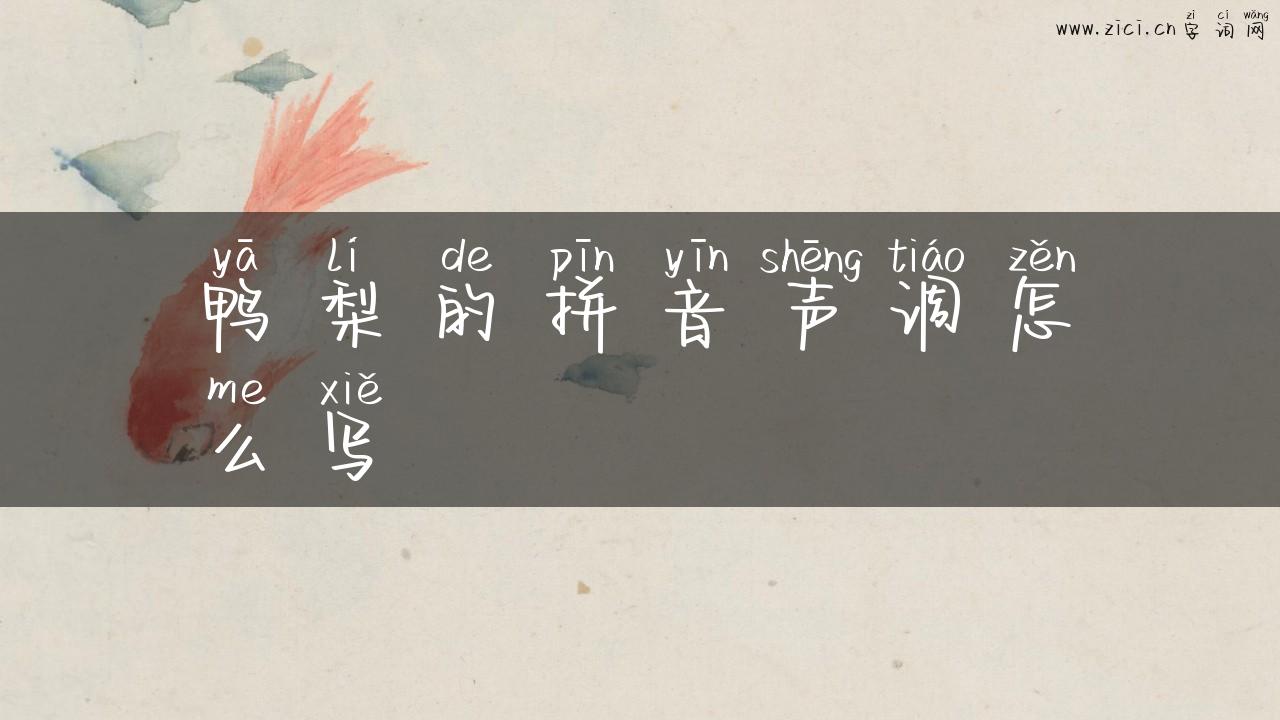 zì cí wǎng
www.zici.cn 字词网
yā lí de pīn yīn shēng tiáo zěn
鸭梨的拼音声调怎
me xiě
么写